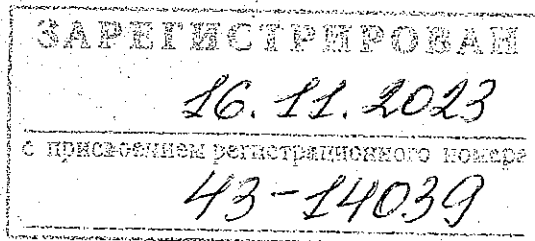 ЗАРЕГИСТРИРОВАН
16.11.2023
с присвоением регистрационного номера
43-14039